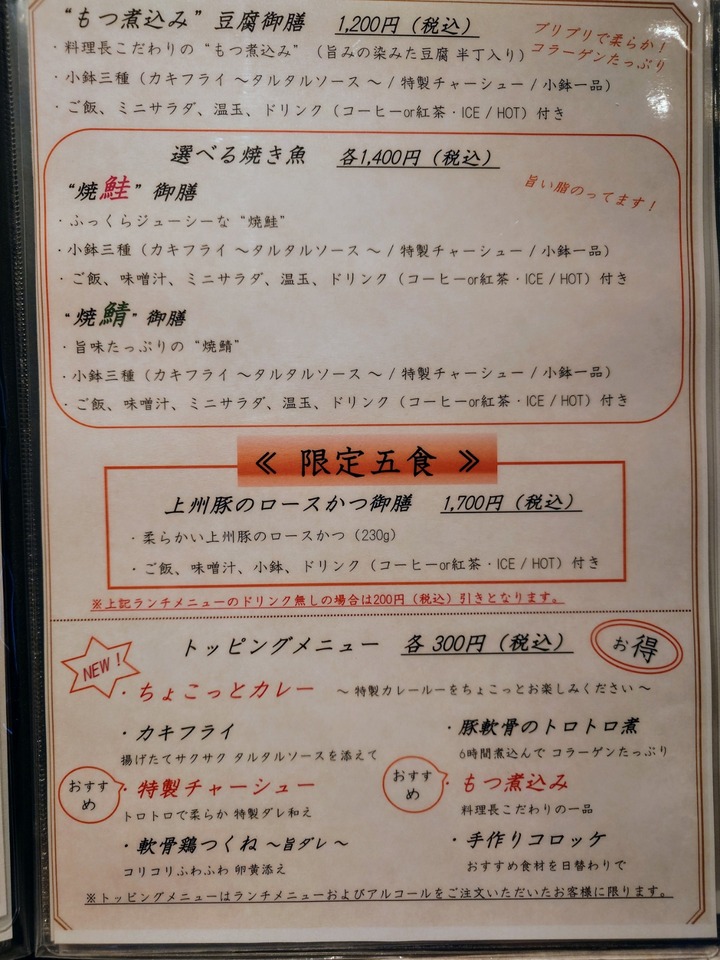 “もつ煮込み” 豆腐御膳　1,200円（税込）
プリプリで柔らか！
コラーゲンたっぷり
・料理長こだわりの“もつ煮込み”（旨みの染みた豆腐 半丁入り）
・小鉢三種（カキフライ ～タルタルソース ～ / 特製チャーシュー / 小鉢一品）
・ご飯、ミニサラダ、温玉、ドリンク（コーヒーor紅茶・ICE / HOT）付き
選べる焼き魚　各1,400円（税込）
“焼鮭” 御膳
旨い脂のってます！
・ふっくらジューシーな “焼鮭”
・小鉢三種（カキフライ ～タルタルソース ～ / 特製チャーシュー / 小鉢一品）
・ご飯、味噌汁、ミニサラダ、温玉、ドリンク（コーヒーor紅茶・ICE / HOT）付き
“焼鯖” 御膳
・旨味たっぷりの “焼鯖”
・小鉢三種（カキフライ ～タルタルソース ～ / 特製チャーシュー / 小鉢一品）
・ご飯、味噌汁、ミニサラダ、温玉、ドリンク（コーヒーor紅茶・ICE / HOT）付き
≪ 限定五食 ≫
上州豚のロースかつ御膳　1,700円（税込）
・柔らかい上州豚のロースかつ（230g）
・ご飯、味噌汁、小鉢、ドリンク（コーヒーor紅茶・ICE / HOT）付き
※上記ランチメニューのドリンク無しの場合は200円（税込）引きとなります。
トッピングメニュー　各300円（税込）
お得
NEW！
・ちょこっとカレー　～ 特製カレールーをちょこっとお楽しみください ～
・カキフライ
揚げたてサクサク タルタルソースを添えて
・豚軟骨のトロトロ煮
6時間煮込んで コラーゲンたっぷり
おすすめ
・特製チャーシュー
トロトロで柔らか 特製ダレ和え
おすすめ
・もつ煮込み
料理長こだわりの一品
・軟骨鶏つくね ～旨ダレ～
コリコリふわふわ 卵黄添え
・手作りコロッケ
おすすめ食材を日替わりで
※トッピングメニューはランチメニューおよびアルコールをご注文いただいたお客様に限ります。